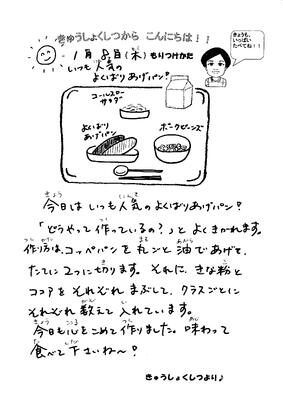 きゅうしょくしつから こんにちは！！
1月8日(木) もりつけかた
いつも人気の
よくばりあげパン！
きょうも、
いっぱい
たべてね！！
コールスロー
サラダ
よくばり
あげパン
ポークビーンズ
今日はいつも人気のよくばりあげパン！
「どうやって作っているの？」とよくきかれます。
作り方は、コッペパンを丸ごと油であげて、
たてに2つに切ります。それに、きな粉と
ココアをそれぞれまぶして、クラスごとに
それぞれ数えて入れています。
今日も心をこめて作りました。味わって
食べて下さいね〜！
きゅうしょくしつより♪